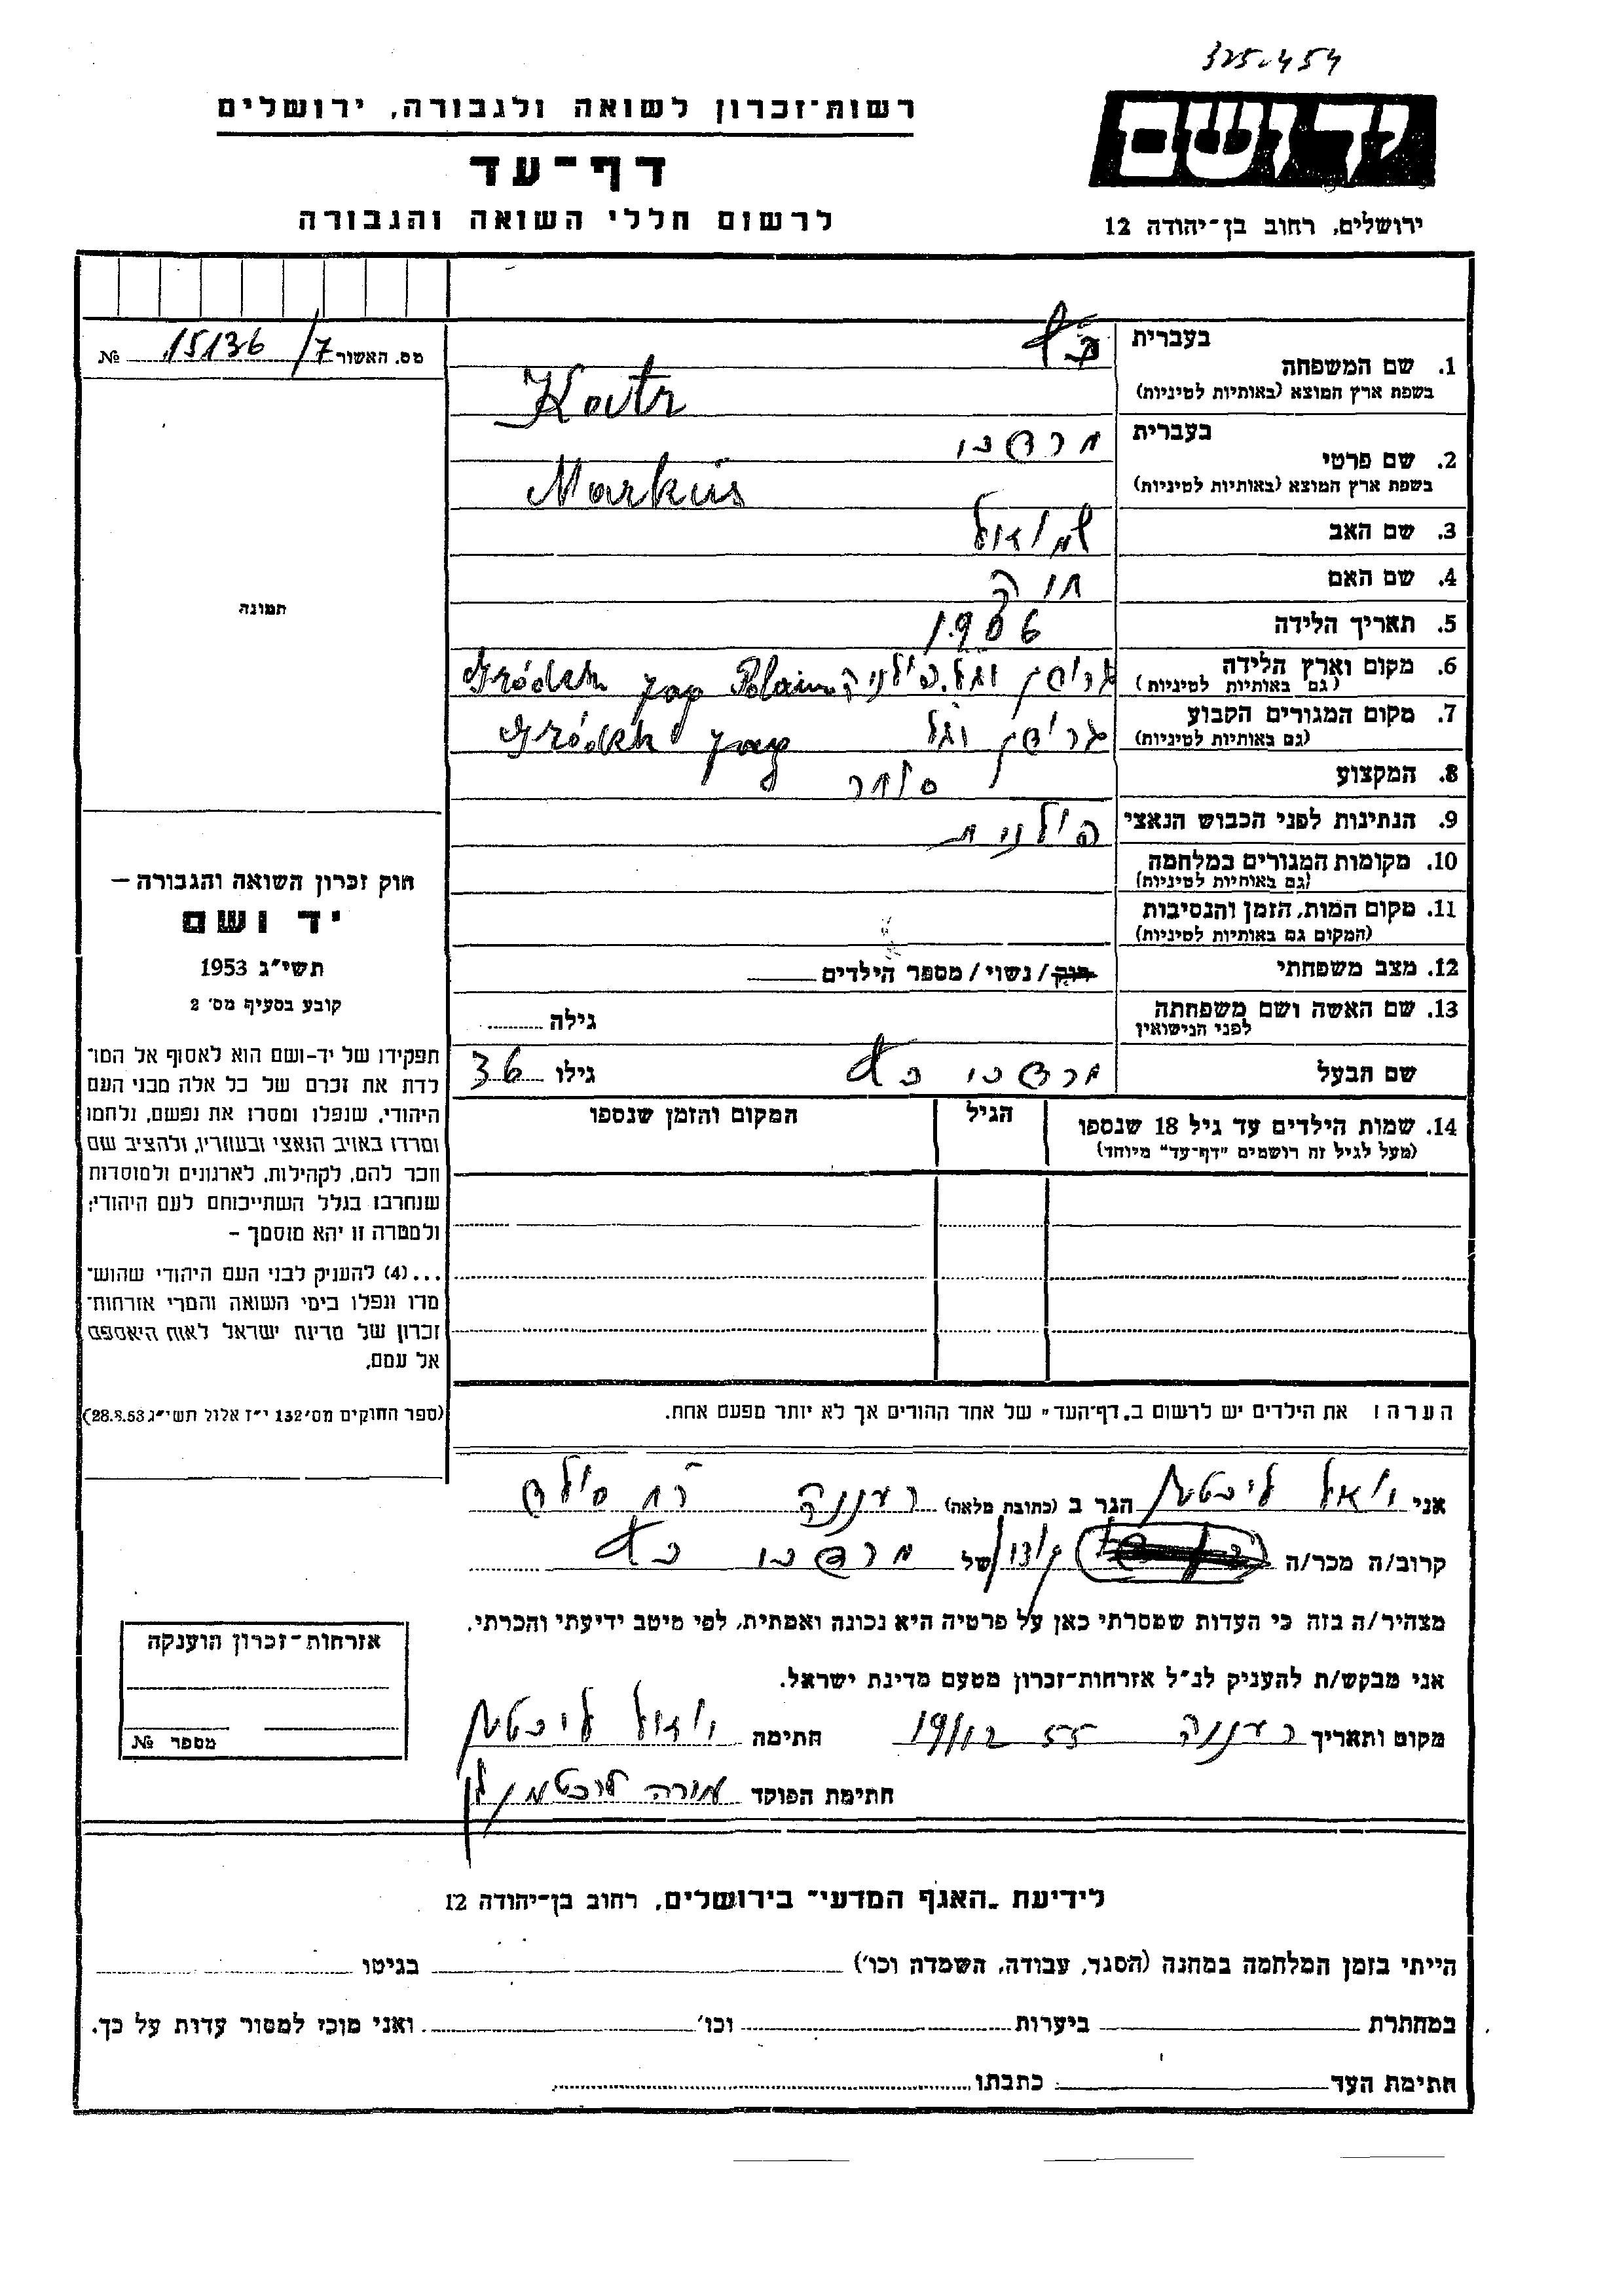 325-454
רשות־זכרון לשואה ולגבורה, ירושלים
דף־עד
לרשום חללי השואה והגבורה
ידושם
ירושלים, רחוב בן־יהודה 12
מס. האשור 15136/7 №
1. שם המשפחה בעברית
בשפת ארץ המוצא (באותיות לטיניות)
2. שם פרטי בעברית מרקוס
בשפת ארץ המוצא (באותיות לטיניות) Markus
3. שם האב שמואל
4. שם האם חוה
5. תאריך הלידה 1906
6. מקום וארץ הלידה
(גם באותיות לטיניות) Gródek jag
7. מקום המגורים הקבוע
(גם באותיות לטיניות) Gródek jag
8. המקצוע סוחר
9. הנתינות לפני הכבוש הנאצי פולנית
10. מקומות המגורים במלחמה
(גם באותיות לטיניות)
11. מקום המות, הזמן והנסיבות
(המקום גם באותיות לטיניות)
12. מצב משפחתי רוק / נשוי / מספר הילדים
13. שם האשה ושם משפחתה
לפני הנישואין
גילה
שם הבעל מרקוס גילו 36
14. שמות הילדים עד גיל 18 שנספו
(מעל לגיל זה רושמים "דף־עד" מיוחד)
הגיל
המקום והזמן שנספו
הערה: את הילדים יש לרשום ב"דף־העד" של אחד ההורים אך לא יותר מפעם אחת.
תמונה
חוק זכרון השואה והגבורה —
יד ושם
תשי"ג 1953
קובע בסעיף מס' 2
תפקידו של יד-ושם הוא לאסוף אל המו־
לדת את זכרם של כל אלה מבני העם
היהודי, שנפלו ומסרו את נפשם, נלחמו
ומרדו באויב הנאצי ובעוזריו, ולהציב שם
וזכר להם, לקהילות, לארגונים ולמוסדות
שנחרבו בגלל השתייכותם לעם היהודי;
ולמטרה זו יהא מוסמך –
...(4) להעניק לבני העם היהודי שהוש־
מדו ונפלו בימי השואה והמרי אזרחות־
זכרון של מדינת ישראל לאות היאספם
אל עמם.
(ספר החוקים מס' 132 י"ז אלול תשי"ג 28.8.53)
אני יואל ליכטמן הגר ב (כתובת מלאה) רעננה רח סולד
קרוב/ה מכר/ה של מרקוס
מצהיר/ה בזה כי העדות שמסרתי כאן על פרטיה היא נכונה ואמתית, לפי מיטב ידיעתי והכרתי.
אני מבקש/ת להעניק לנ"ל אזרחות־זכרון מטעם מדינת ישראל.
מקום ותאריך רעננה 19/12 55 חתימה יואל ליכטמן
חתימת הפוקד
אזרחות־זכרון הוענקה
מספר №
לידיעת "האגף המדעי" בירושלים, רחוב בן־יהודה 12
הייתי בזמן המלחמה במחנה (הסגר, עבודה, השמדה וכו') בגיטו
במחתרת ביערות וכו' ואני מוכן למסור עדות על כך.
חתימת העד כתבתו